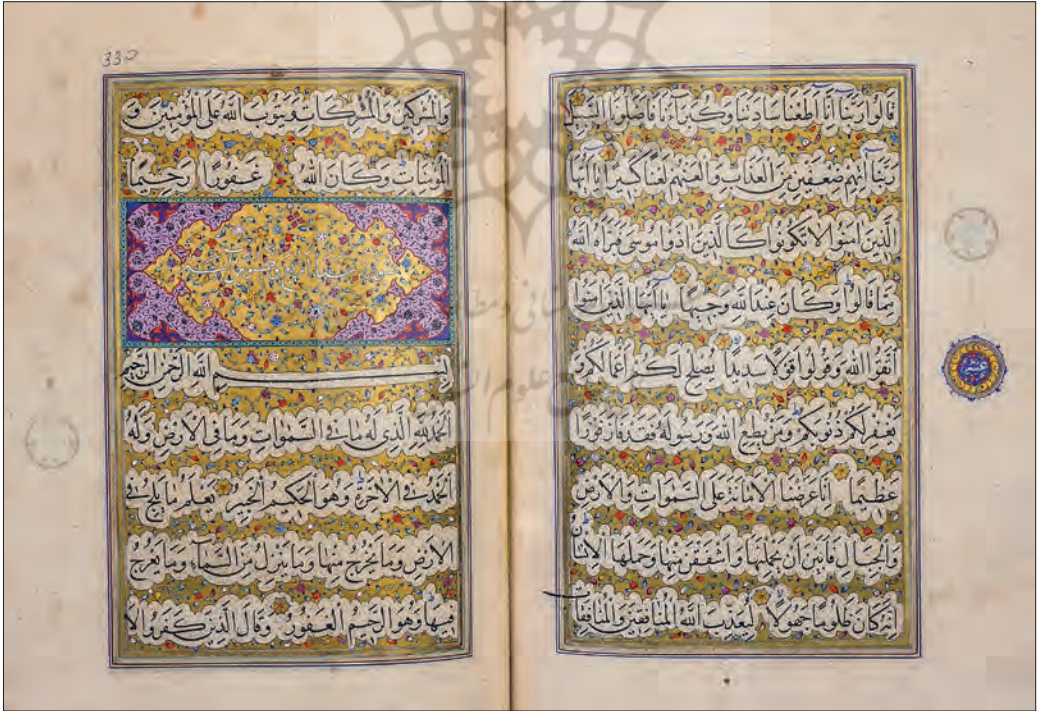 قالوا ربنا انا اطعنا سادتنا وكبراءنا فاضلونا السبيل
ربنا آتهم ضعفين من العذاب والعنهم لعنا كبيرا يا ايها
الذين امنوا لا تكونوا كالذين اذوا موسى فبراه الله
مما قالوا وكان عند الله وجيها يا ايها الذين امنوا
اتقوا الله وقولوا قولا سديدا يصلح لكم اعمالكم و
يغفر لكم ذنوبكم ومن يطع الله ورسوله فقد فاز فوزا
عظيما انا عرضنا الامانة على السموات والارض
والجبال فابين ان يحملنها واشفقن منها وحملها الانسان
انه كان ظلوما جهولا ليعذب الله المنافقين والمنافقات
عشر
والمشركين والمشركات ويتوب الله على المؤمنين و
المؤمنات وكان الله غفورا رحيما
بسم الله الرحمن الرحيم
الحمد لله الذي له ما في السموات وما في الارض وله
الحمد في الآخرة وهو الحكيم الخبير يعلم ما يلج في
الارض وما يخرج منها وما ينزل من السماء وما يعرج
فيها وهو الرحيم الغفور وقال الذين كفروا لا